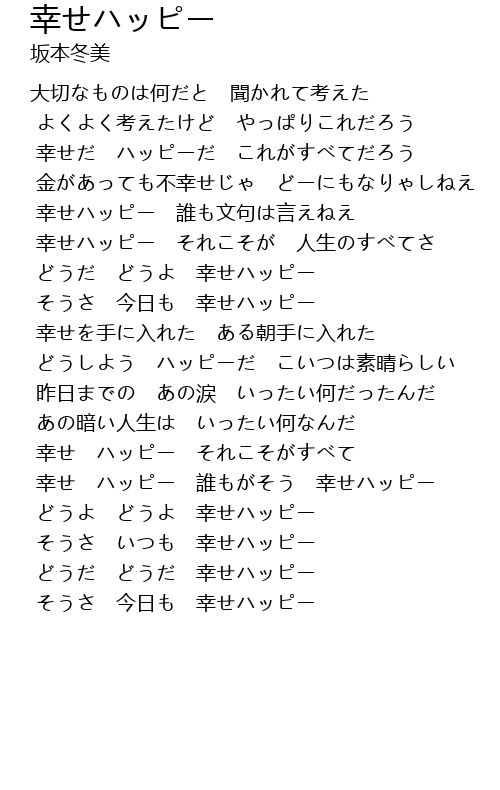 幸せハッピー
坂本冬美
大切なものは何だと　聞かれて考えた
よくよく考えたけど　やっぱりこれだろう
幸せだ　ハッピーだ　これがすべてだろう
金があっても不幸せじゃ　どーにもなりゃしねえ
幸せハッピー　誰も文句は言えねえ
幸せハッピー　それこそが　人生のすべてさ
どうだ　どうよ　幸せハッピー
そうさ　今日も　幸せハッピー
幸せを手に入れた　ある朝手に入れた
どうしよう　ハッピーだ　こいつは素晴らしい
昨日までの　あの涙　いったい何だったんだ
あの暗い人生は　いったい何なんだ
幸せ　ハッピー　それこそがすべて
幸せ　ハッピー　誰もがそう　幸せハッピー
どうよ　どうよ　幸せハッピー
そうさ　いつも　幸せハッピー
どうだ　どうだ　幸せハッピー
そうさ　今日も　幸せハッピー